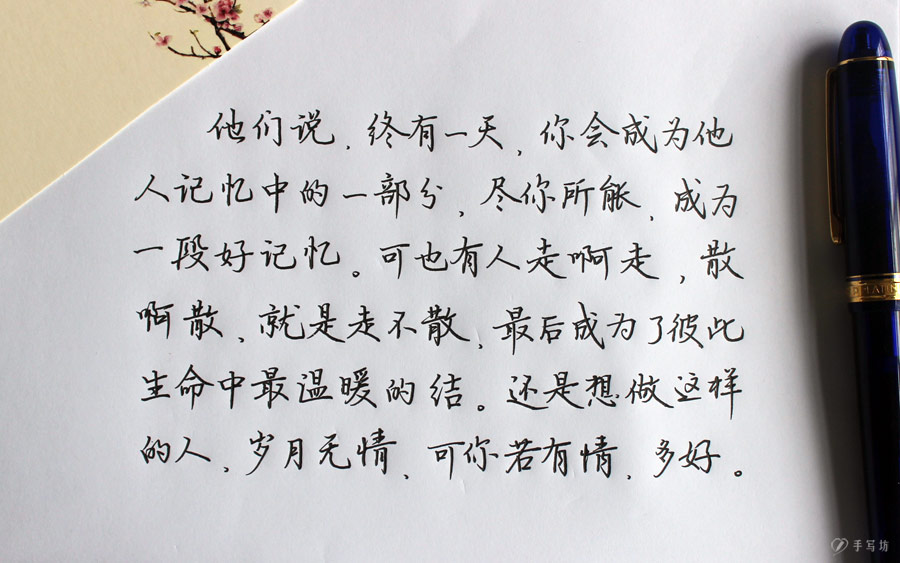 他们说，终有一天，你会成为他
人记忆中的一部分，尽你所能，成为
一段好记忆。可也有人走啊走，散
啊散，就是走不散，最后成为了彼此
生命中最温暖的结。还是想做这样
的人，岁月无情，可你若有情，多好。
手写坊